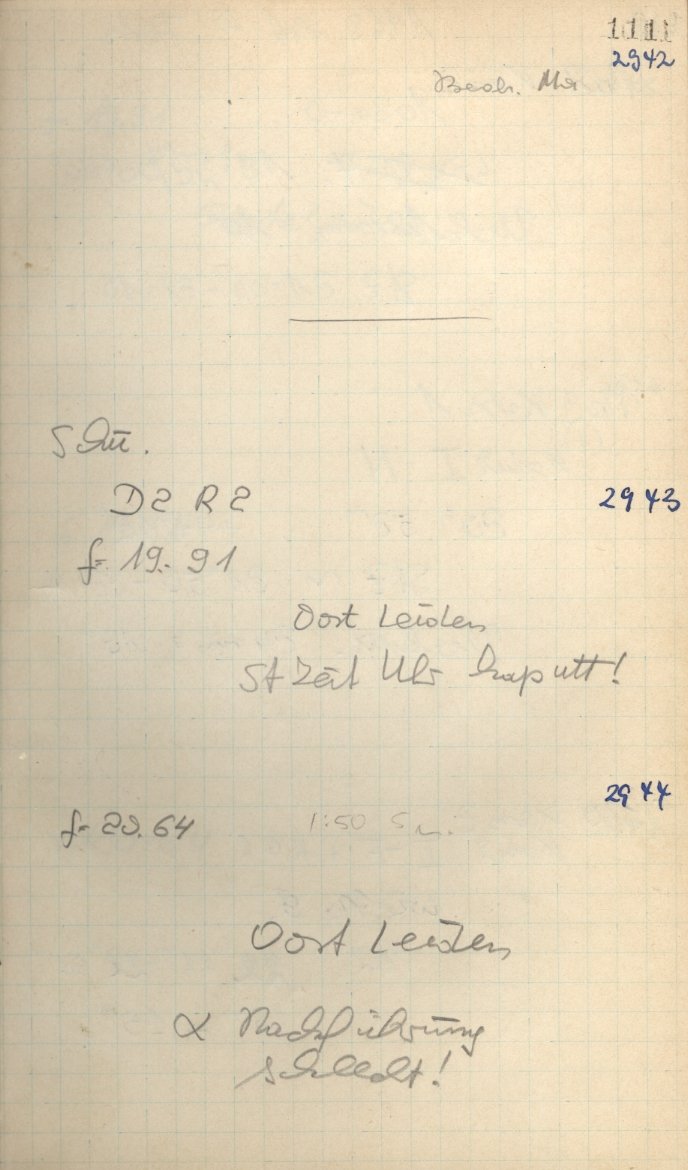 1111
2942
Beob.
Schü.
D2 R2
2943
f= 19.91
Oort Leiden
St Zeit Uhr kaputt!
2944
f= 20.64
1:50
Oort Leiden
α Nachführung
schlecht!